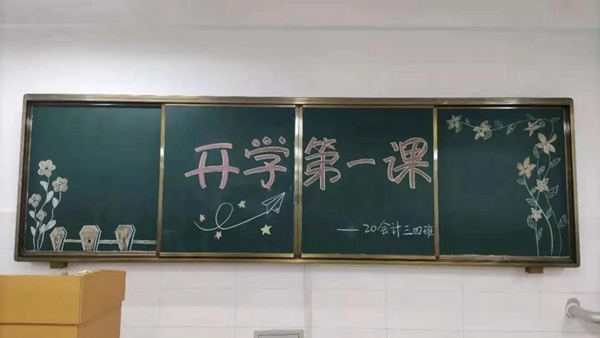 开学第一课
——20会计三四班